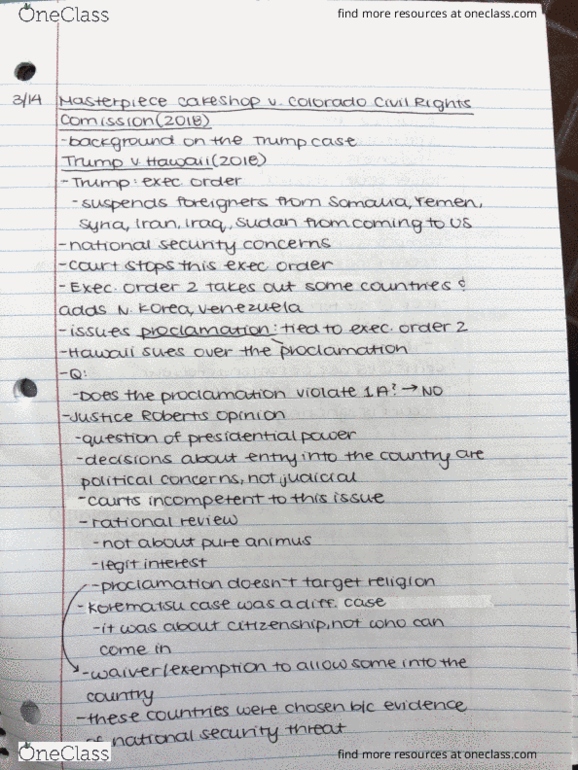 OneClass
find more resources at oneclass.com
3/14 Masterpiece Cakeshop v. Colorado Civil Rights
Comission (2018)
-background on the Trump case
Trump v Hawaii (2018)
-Trump: exec order
-suspends foreigners from Somalia, Yemen,
Syria, Iran, Iraq, Sudan from coming to US
-national security concerns
-court stops this exec order
-Exec. order 2 takes out some countries &
adds N. Korea, Venezuela
-issues proclamation: tied to exec. order 2
-Hawaii sues over the proclamation
-Q:
-Does the proclamation violate 1A? → NO
-Justice Roberts Opinion
-question of presidential power
-decisions about entry into the country are
political concerns, not judicial
-courts incompetent to this issue
-rational review
-not about pure animus
-legit interest
-proclamation doesn't target religion
-Korematsu case was a diff. case
-it was about citizenship, not who can
come in
-waiver/exemption to allow some into the
country
-these countries were chosen b/c evidence
of national security threat
OneClass
find more resources at oneclass.com